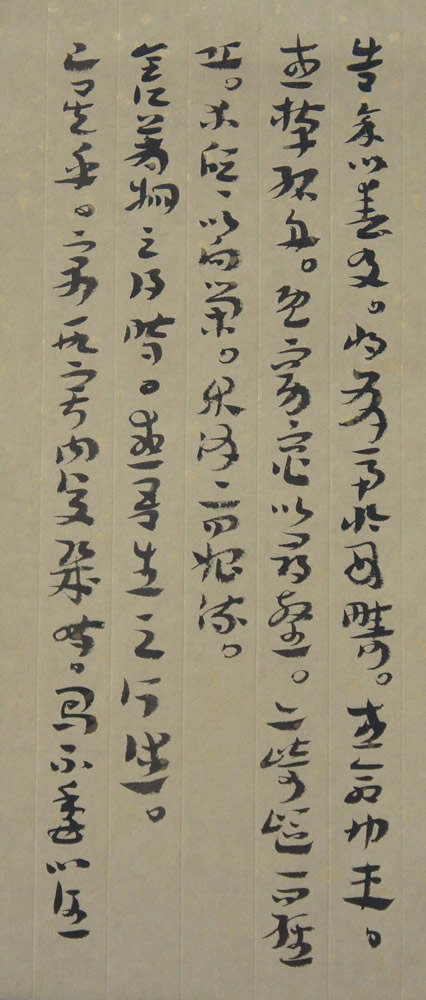 告余以春及。將有事於西疇。或命巾車。
或棹孤舟。既窈窕以尋壑。亦崎嶇而經
丘。木欣欣以向榮。泉涓涓而始流。
善萬物之得時。感吾生之行休。
已矣乎。寓形宇內復幾時。曷不委心任